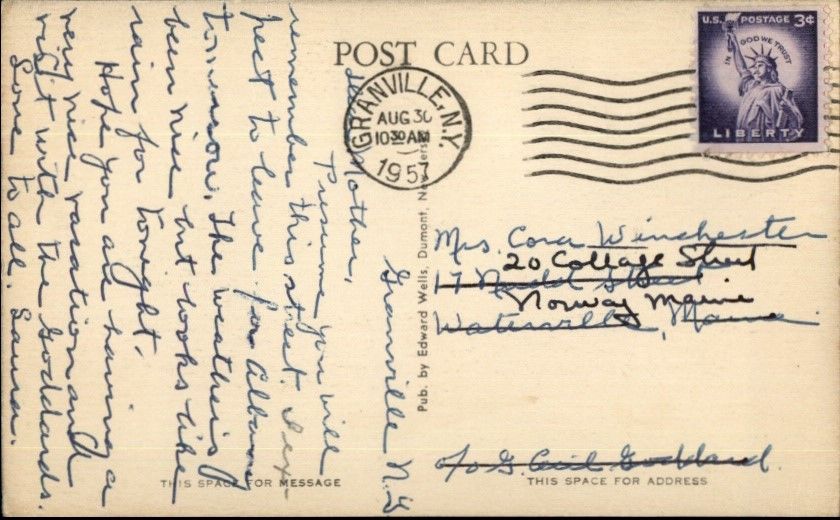 POST CARD
U.S. POSTAGE 3¢
IN GOD WE TRUST
LIBERTY
GRANVILLE, N.Y.
AUG 30
10 30 AM
1957
Granville N.Y
Dear Mother,
Presume you will
remember this street. I ex-
pect to leave for Albany
tomorrow. The weather is
been nice but looks like
rain for tonight.
Hope you are having a
very nice vacation and
visit with the Goddards.
Love to all. Laura.
Pub. by Edward Wells, Dumont, New Jersey
Mrs. Cora Winchester
20 Cottage Street
17 Street
Norway Maine
Waterville, Maine
c/o G. Cecil Goddard.
THIS SPACE FOR MESSAGE
THIS SPACE FOR ADDRESS